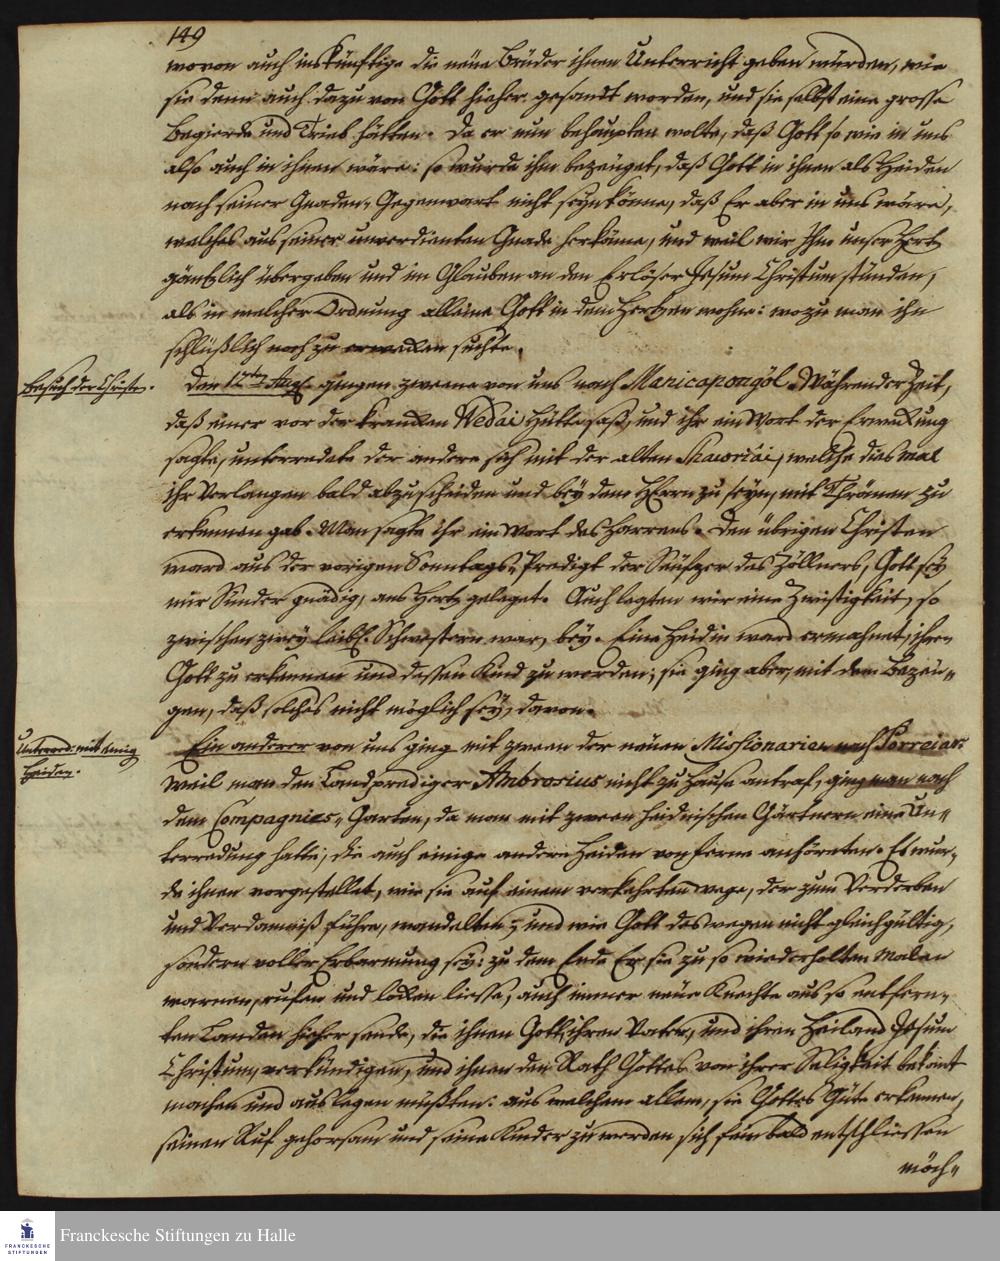 149
wovon auch ins künftige die neüe Brüder ihnen Unterricht geben würden, wie
sie denn auch dazu von Gott hieher gesandt worden, und sie selbst eine grosse
Begierde und Trieb hätten. Da er nun behaupten wolte, daß Gott so wie in uns
also auch in ihnen wäre: so wurde ihm bezeüget, daß Gott in ihnen als Heiden
nach seiner Gnaden-Gegenwart nicht seyn könne, daß Er aber in uns wäre,
welches aus seiner unverdienten Gnade herkäme, und weil wir Ihm unser Hertz
gäntzlich übergeben und im Glauben an den Erlöser Jesum Christum stünden,
als in welcher Ordnung alleine Gott in dem Hertzen wohne: wozu man ihn
schlüßlich noch zu erwecken suchte.
Besuch der Christen.
Den 12ten Aug. gingen zweene von uns nach Manicapongöl. Während der Zeit,
daß einer vor der krancken Wedai Hütte saß, und ihr ein Wort der Erweckung
sagte, unterredete der andere sich mit der alten Shawriâi, welche dies mal
ihr Verlangen bald abzuscheiden und bey dem HErrn zu seyn, mit Thränen zu
erkennen gab. Man sagte ihr ein Wort des Harrens. Den übrigen Christen
ward aus der vorigen Sonntags-Predigt der Seüfzer des Zöllners, Gott sey
mir Sünder gnädig, ans Hertz geleget. Auch legten wir eine Zwistigkeit, so
zwischen zwey leibl. Schwestern war, bey. Eine Heidin ward ermahnet, ihren
Gott zu erkennen und dessen Kind zu werden; sie ging aber, mit dem Bezeü-
gen, daß solches nicht möglich sey, davon.
Unterred: mit einig
Heiden.
Ein anderer von uns ging mit zween der neüen Missionarien nach Porreiar:
Weil man den Landprediger Ambrosius nicht zu Hause antraf, ging man nach
dem Compagnies-Garten, da man mit zween heidnischen Gärtnern eine Un-
terredung hatte, die auch einige andere Heiden von ferne anhöreten. Es wur-
de ihnen vorgestellet, wie sie auf einem verkehrten wege, der zum Verderben
und Verdamniß führe, wandelten; und wie Gott deswegen nicht gleichgültig,
sondern voller Erbarmung sey: zu dem Ende Er sie zu so wiederholten Malen
warnen, rufen und locken liesse, auch immer neüe Knechte aus so entfern-
ten Landen hieher sende, die ihnen Gott, ihren Vater, und ihren Heiland Jesum
Christum, verkündigen, und ihnen den Rath Gottes von ihrer Seligkeit bekant
machen und auslegen müßten: aus welchem allem, sie Gottes Güte erkennen,
seinem Ruf gehorsam und seine Kinder zu werden sich fein bald entschliessen
möch-
Franckesche Stiftungen zu Halle
FRANCKESCHE
STIFTUNGEN